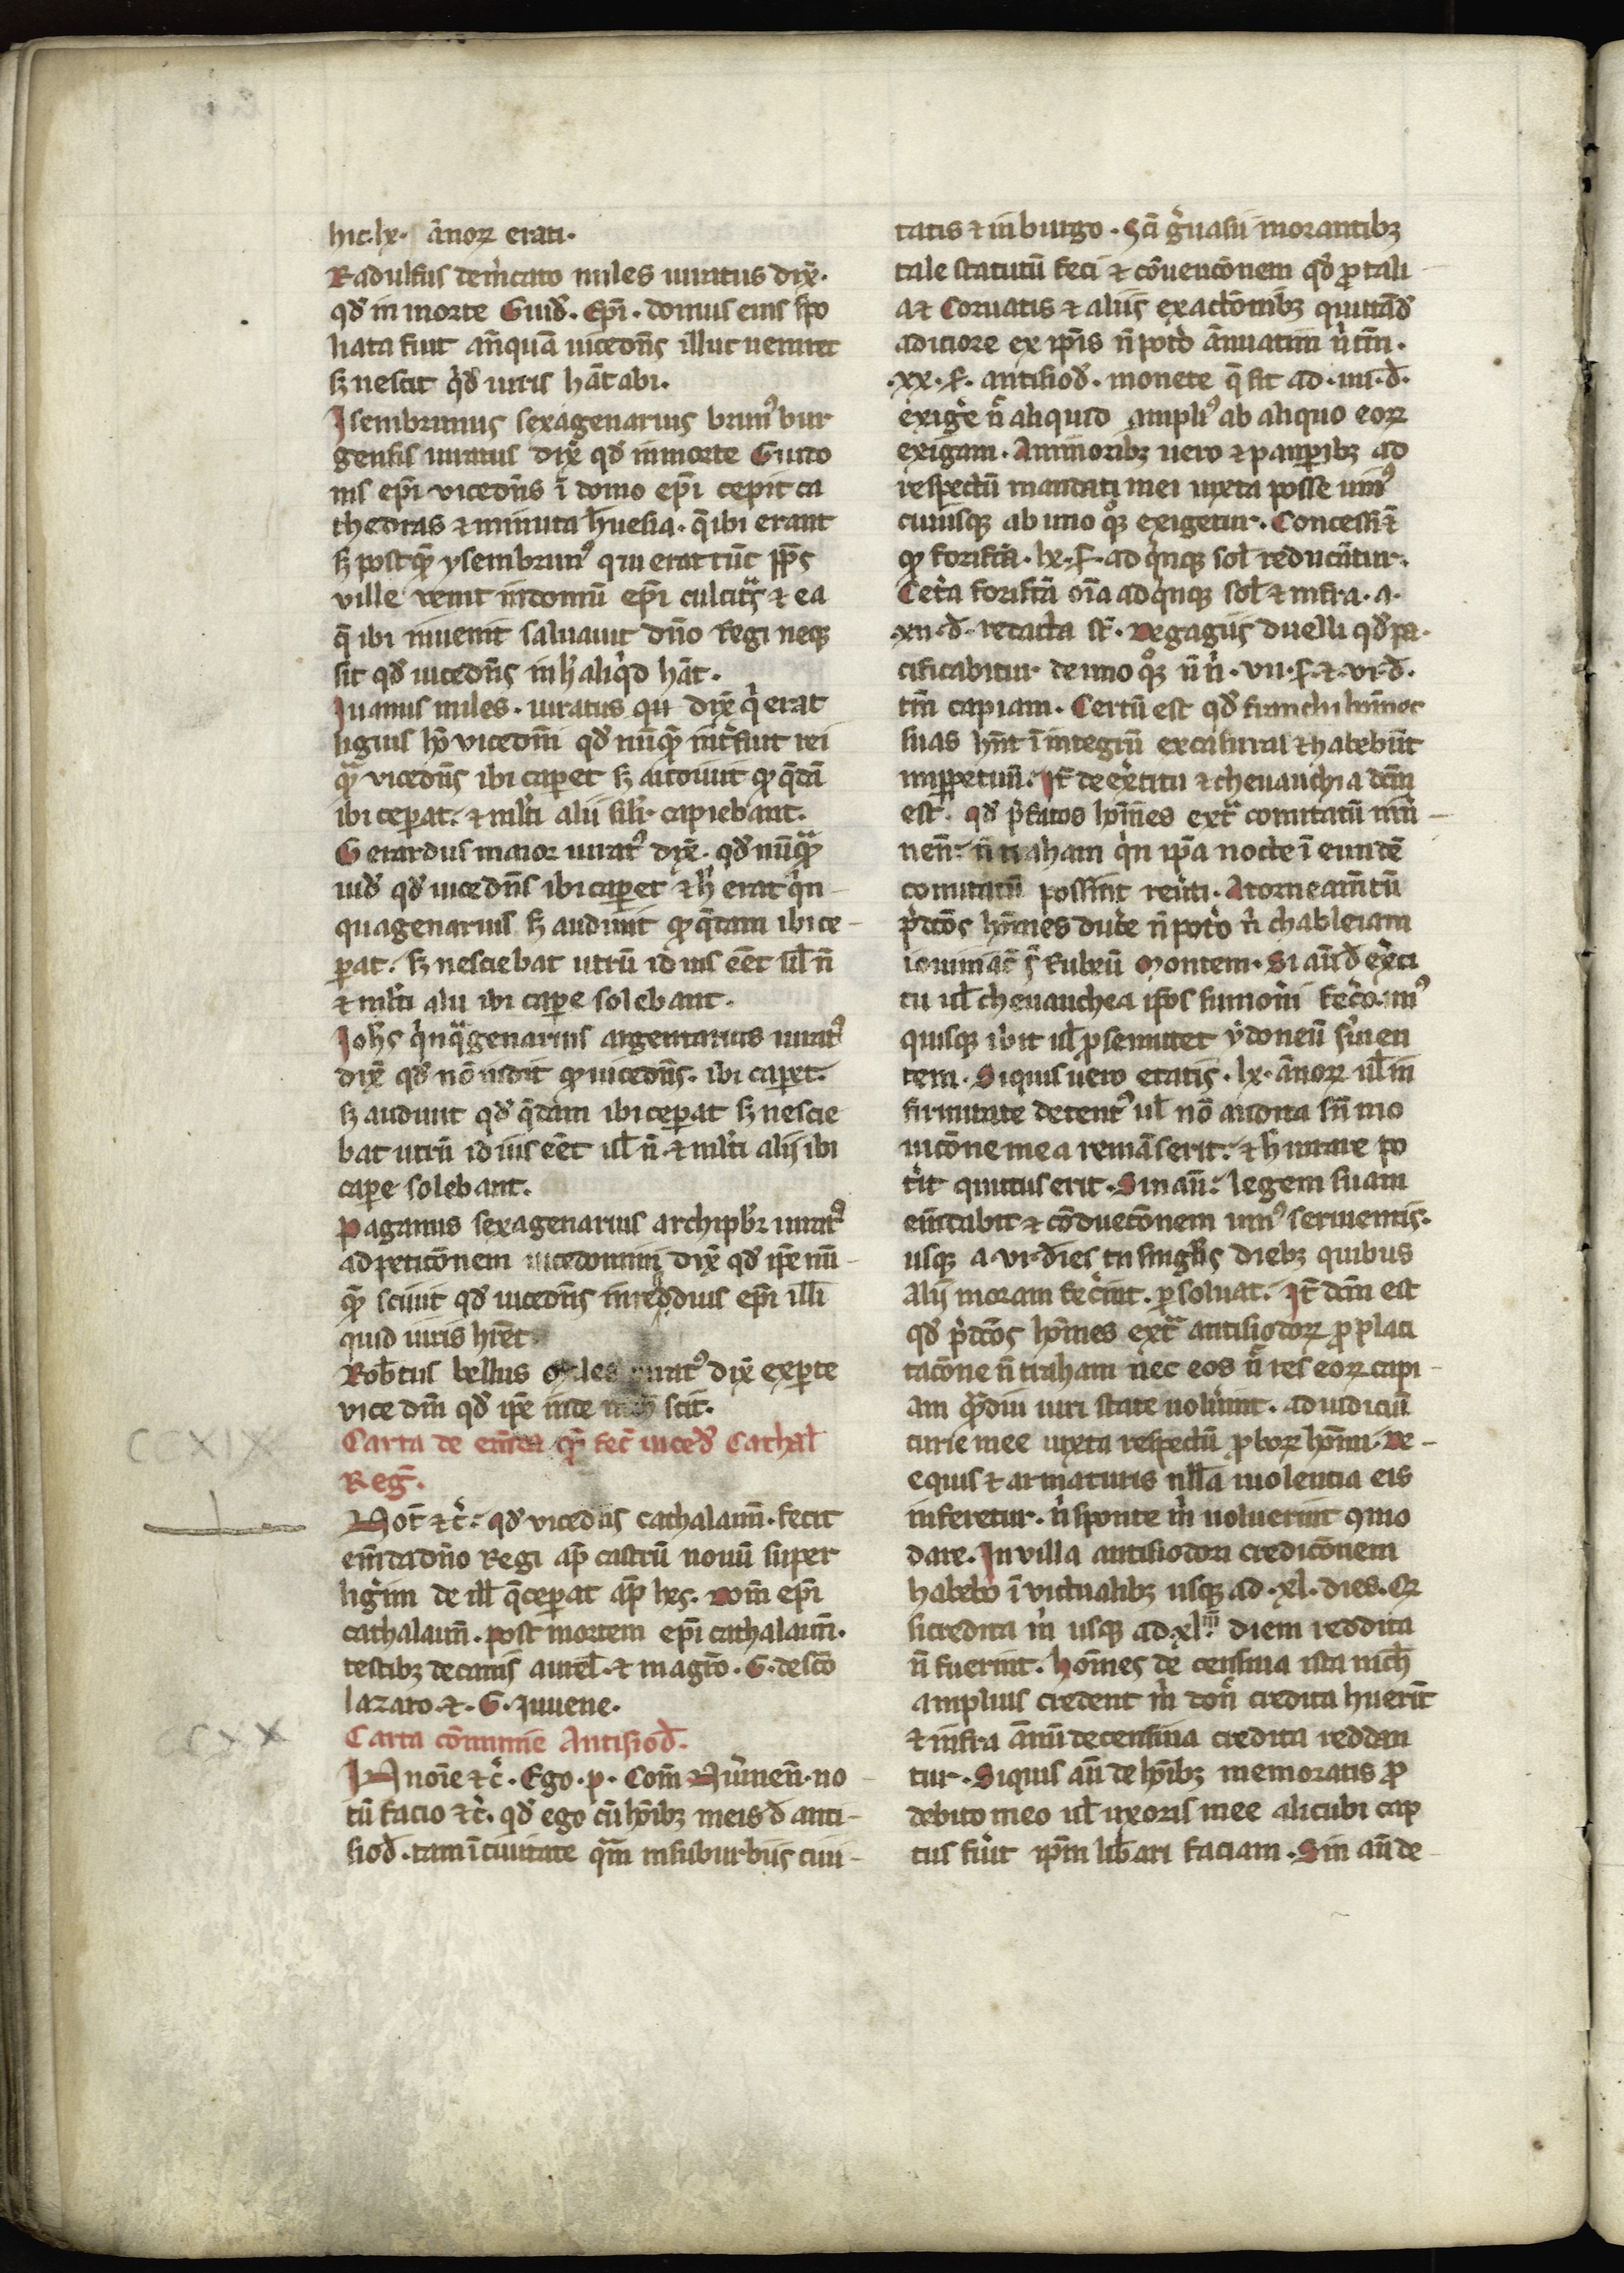 hic. lx. ãnoꝝ erati.
Radulfus dem̾cato miles iuratus dix̃.
qd̾ in morte Guid̾. Ep̃i. domus eius spo
liata fuit añquã uicedñs illuc ueniret
sꝫ nescit qͥd iuris hãt abi.
Isembrunus sexagenarius brunꝰ bur
gensis iuratus dix̃ qd̾ in morte Guido
nis ep̃i vicedñs ĩ domo ep̃i cepit ca
thedras ⁊ minuta h̾nesia. q̃ ibi erant
sꝫ postꝙ̃ ysembrunꝰ qui erat tũc pp̃s
ville venit in domũ ep̃i culcitͣs ⁊ ea
q̃ ibi inuenit saluauit dño Regi neqꝫ
sit qd̾ uicedñs in h̾ aliqͥd hãt.
Iuanus miles. iuratus qui dix̃ qͥ erat
ligius hõ vicedñi qd̾ nũꝙ̃ int̾fuit rei
qͣ vicedñs ibi cap̱et sꝫ audiuit ꝙ q̃dã
ibi cep̱at. ⁊ ml̾ti alii sil̾r capiebant.
Gerardus maior iuratꝰ dix̃. qd̾ nũꝙͣ
uid̾ qd̾ uicedñs ibi cap̱et ⁊ h̾ erat qͥn
quagenarius sꝫ audiuit ꝙ q̃dam ibi ce-
p̱at. sꝫ nesciebat utrũ id ius eẽt ul̾ ñ
⁊ ml̾ti alii ibi cap̱e solebant.
Joh̃s qͥnqͣgenarius argentarius iuratꝰ
dix̃ qd̾ nõ uidit ꝙ uicedñs. ibi cap̱et.
sꝫ audiuit qd̾ q̃dam ibi cep̱at sꝫ nescie
bat utrũ id ius eẽt ul̾ ñ ⁊ ml̾ti alij ibi
cap̱e solebant.
Paganus sexagenarius archipb̾r iuratꝰ
ad peticõnem uicedomini dix̃ qd̾ ip̃e nũ-
ꝙ̃ sciuit qd̾ uicedñs in redduis ep̃i illi
quid iuris hr̃et.
Rob̾tus bellus iuratꝰ dix̃ ex p̱te
vice dñi qd̾ ip̃e inde scit.
CCXIX
Carta de em̃da q̃ fec̾ uiced̾ Cathal̾
Reg̃.
Not̾ ⁊c̾. qd̾ vicedñs cathalauñ. fecit
em̃da dño Regi ap̃ castrũ nouũ super
lig̾im de ill̾ q̃ cep̱at ap̃ hẽs. Dom̃ ep̃i
cathalauñ. post mortem ep̃i cathalauñ.
testibꝫ decanis aurel̾. ⁊ magr̃o. G. de sc̃o
lazaro. ⁊. G. Iuuene.
CCXX
Carta cõmunie Antisiod̾.
IN noĩe ⁊c̾. Ego. p. Com̃ Niuern̾. no-
tũ facio ⁊c̾. qd̾ ego cũ hõibꝫ meis d̾ anti-
siod̾. tam ĩ ciuitate qͣm in suburbijs ciui-
tatis ⁊ in burgo. Sc̃i g̾uasii morantibꝫ
tale statutũ feci ⁊ cõuencõnem qd̾ ꝓ tali-
a ⁊ Coruatis ⁊ aliis exactõnibꝫ quitãd̾
a diciore ex ip̃is ñ pot̾o ãnuatim ñ tm̃.
.xx. s̾. antisiod̾. monete q̃ sit ad. iiij. d̾.
exig̾e ñ aliquid ampliꝰ ab aliquo eoꝝ
exigam. A minoribꝫ uero ⁊ paup̱ibꝫ ad
respectũ mandati mei iuxta posse uniꝰ
cuiusqꝫ ab uno qͦqꝫ exigetur. Concessi ⁊
ꝙ forifc̃a. lx. s̾. ad qͥnqꝫ sol̾ reducãtur.
Cet̾a forifc̃a oĩa ad qͥnqꝫ sol̾ ⁊ infra. a.
.xii. d̾. redacta st̾. De gagiis duelli qd̾ pa-
cificabitur de uno qͦqꝫ ñ ñ. vii. s̾. ⁊. vi. d̾.
tm̃ capiam. Certũ est qd̾ franchi hom̃
suas hñt ĩ integrũ excasuras ⁊ habebũt
imp̱petuũ. It̾ de ex̾citu ⁊ cheuauchia dc̃m
est. qd̾ p̾fatos hom̃es ext̾ comitatũ niu̾-
neñ. ñ traham qͥn ip̃a nocte ĩ eundẽ
comitatũ possint reu̾ti. A torneamtũ
p̾dc̃os hom̃es duc̾e ñ pot̾o ñ chableiam
iouiniac̾ s̾ Rubeũ Montem. Si aũ d̾ ex̾ci
tu ul̾ cheuauchea ip̃os sumoñi fec̾o. unꝰ
quisqꝫ ibit ul̾ ꝓ se mittet ydoneũ s̾uien
tem. Si quis uero etatis. lx. ãnoꝝ ul̾ in
firmitate detentꝰ ul̾ nõ audita sũmo
nicõne mea remãserit. ⁊ h̾ iurare po
t̾it quitus erit. Sin aũ. legem suam
em̃dabit ⁊ cõductõnem uniꝰ seruientis.
usqꝫ a .vi. dies in singul̾is diebꝫ quibus
Alij moram fec̾int. p̱soluat. It̾ dc̃m est
qd̾ p̾dc̃os hom̃es extͣ antisiodoꝝ ꝓ placi
tacõne ñ traham nec eos ñ res eoꝝ capi-
am qͣmdiu iuri stare uolu̾int. ad iudiciũ
curie mee iuxta respectũ ꝓboꝝ hom̃i. De-
equis ⁊ armaturis nll̃a uiolentia eis
inferetur. ñ sponte m̾ uoluerint ꝯmo
dare. In villa antisiodori credicõnem
habebo ĩ victualibꝫ usqꝫ ad. xl. dies. Qꝛ
si credita m̾ usqꝫ ad xlᵐ diem reddita
ñ fuerint. hom̃es de censiua ista nich̾
amplius credent m̾ don̾ credita huer̃it
⁊ infra ãnũ de censiua credita reddan
tur. Si quis aũ de hõibꝫ memoratis ꝓ
debito meo ul̾ uxoris mee alicubi cap
tus fu̾it ip̃m lib̾ari faciam. Sin aũ de-